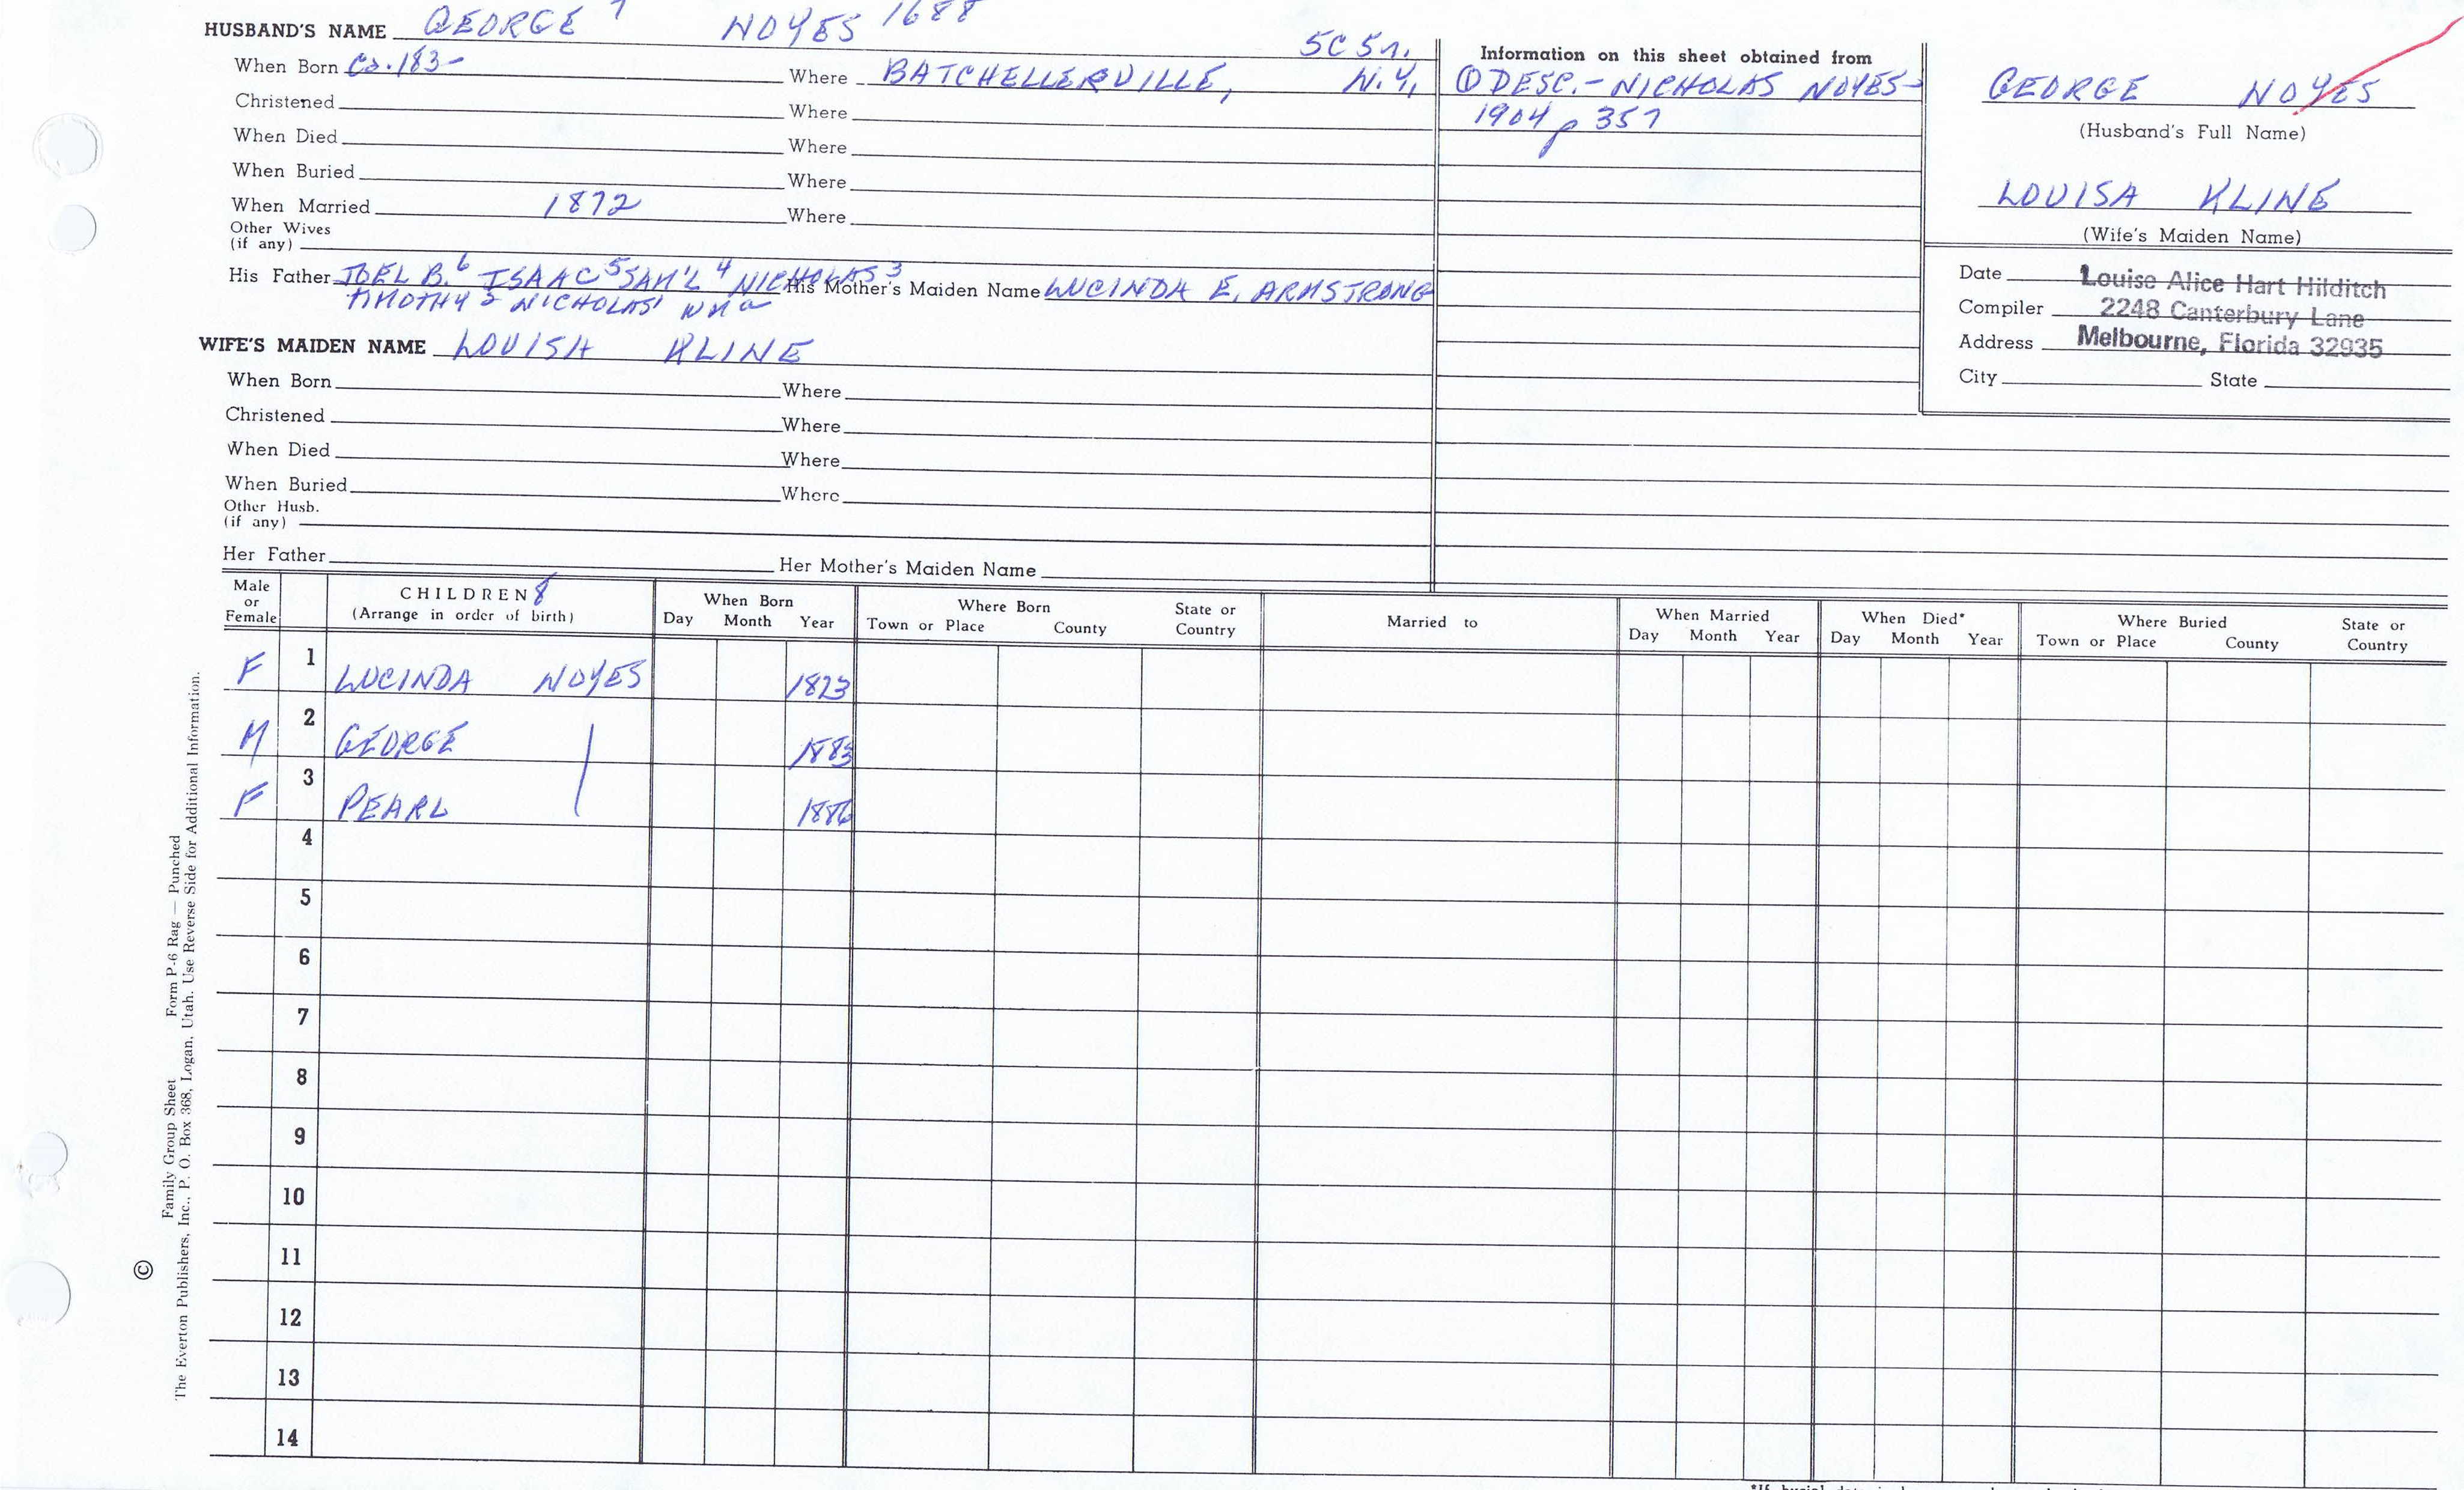 HUSBAND'S NAME GEORGE 7 NOYES 1688
5C 5r.
When Born Ca. 183- Where BATCHELLERVILLE, N.Y.
Christened Where
When Died Where
When Buried Where
When Married 1872 Where
Other Wives
(if any)
His Father JOEL B.6 ISAAC5 SAM'L4 NICHOLAS3 His Mother's Maiden Name LUCINDA E. ARMSTRONG
TIMOTHY2 NICHOLAS1 WMa
WIFE'S MAIDEN NAME LOUISA KLINE
When Born Where
Christened Where
When Died Where
When Buried Where
Other Husb.
(if any)
Her Father Her Mother's Maiden Name
Information on this sheet obtained from
① DESC.-NICHOLAS NOYES-
1904 p 357
GEORGE NOYES
(Husband's Full Name)
LOUISA KLINE
(Wife's Maiden Name)
Date Louise Alice Hart Hilditch
Compiler 2248 Canterbury Lane
Address Melbourne, Florida 32935
City State
Male or Female CHILDREN 8 (Arrange in order of birth) When Born Day Month Year Where Born Town or Place County State or Country Married to When Married Day Month Year When Died* Day Month Year Where Buried Town or Place County State or Country
F 1 LUCINDA NOYES 1873
M 2 GEORGE 1883
F 3 PEARL 1886
4
5
6
7
8
9
10
11
12
13
14
© Family Group Sheet Form P-6 Rag — Punched
The Everton Publishers, Inc., P. O. Box 368, Logan, Utah. Use Reverse Side for Additional Information.